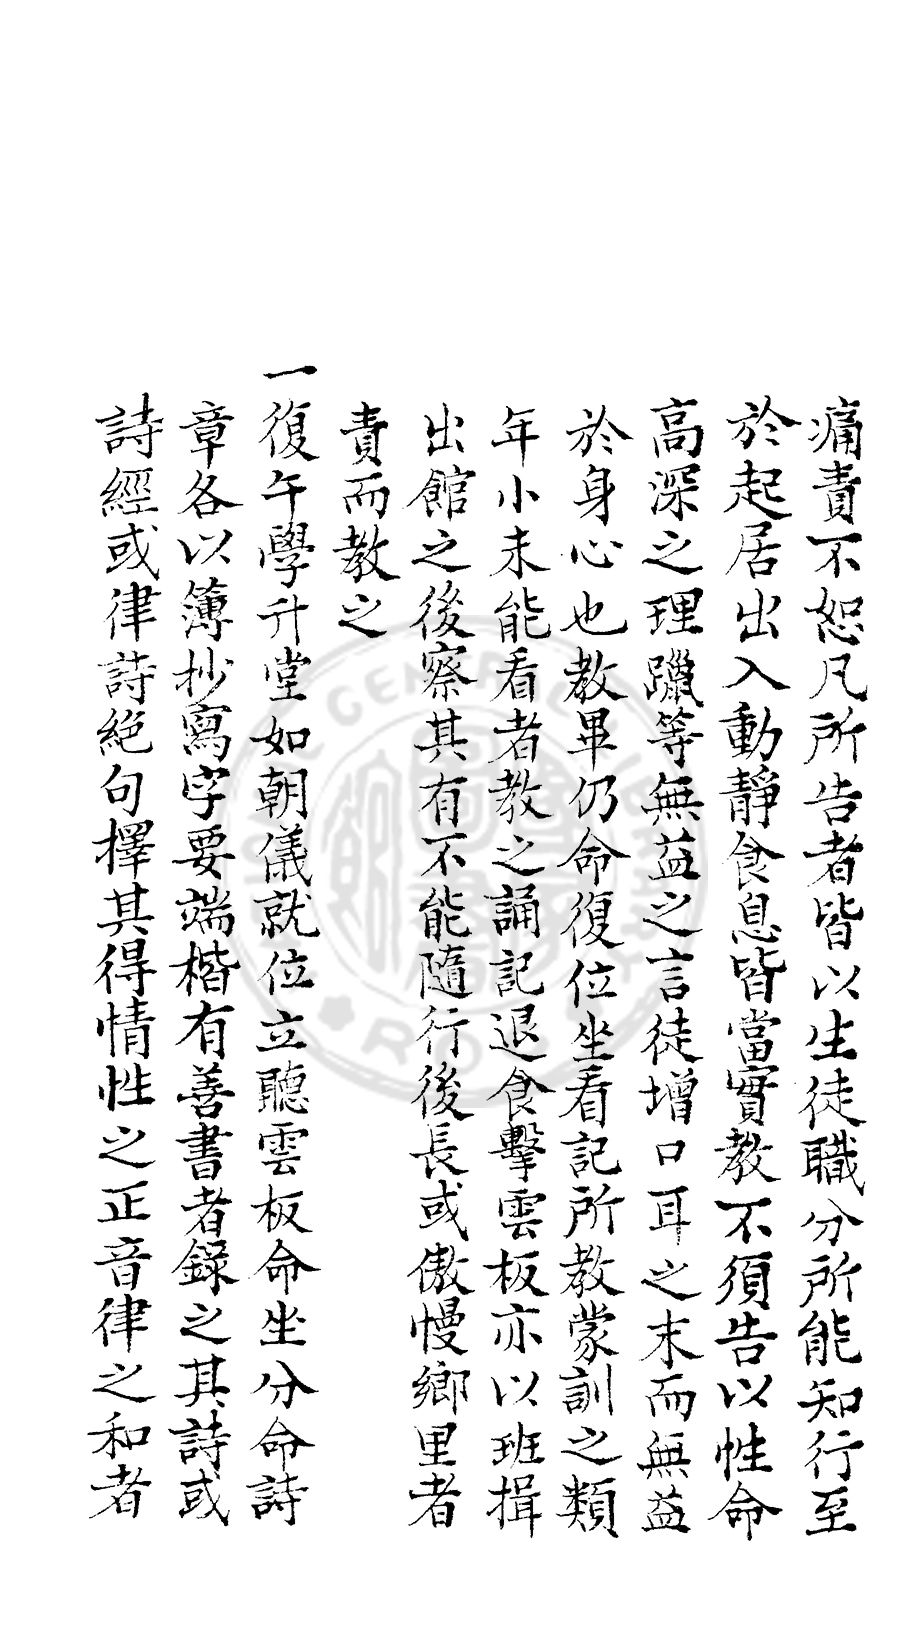 痛責不恕凡所告者皆以生徒職分所能知行至
於起居出入動靜食息皆當實教不須告以性命
高深之理躐等無益之言徒增口耳之末而無益
於身心也教畢仍命復位坐看記所教蒙訓之類
年小未能看者教之誦記退食擊雲板亦以班揖
出館之後察其有不能隨行後長或傲慢鄉里者
責而教之
一復午學升堂如朝儀就位立聽雲板命坐分命詩
章各以簿抄寫字要端楷有善書者錄之其詩或
詩經或律詩絕句擇其得情性之正音律之和者